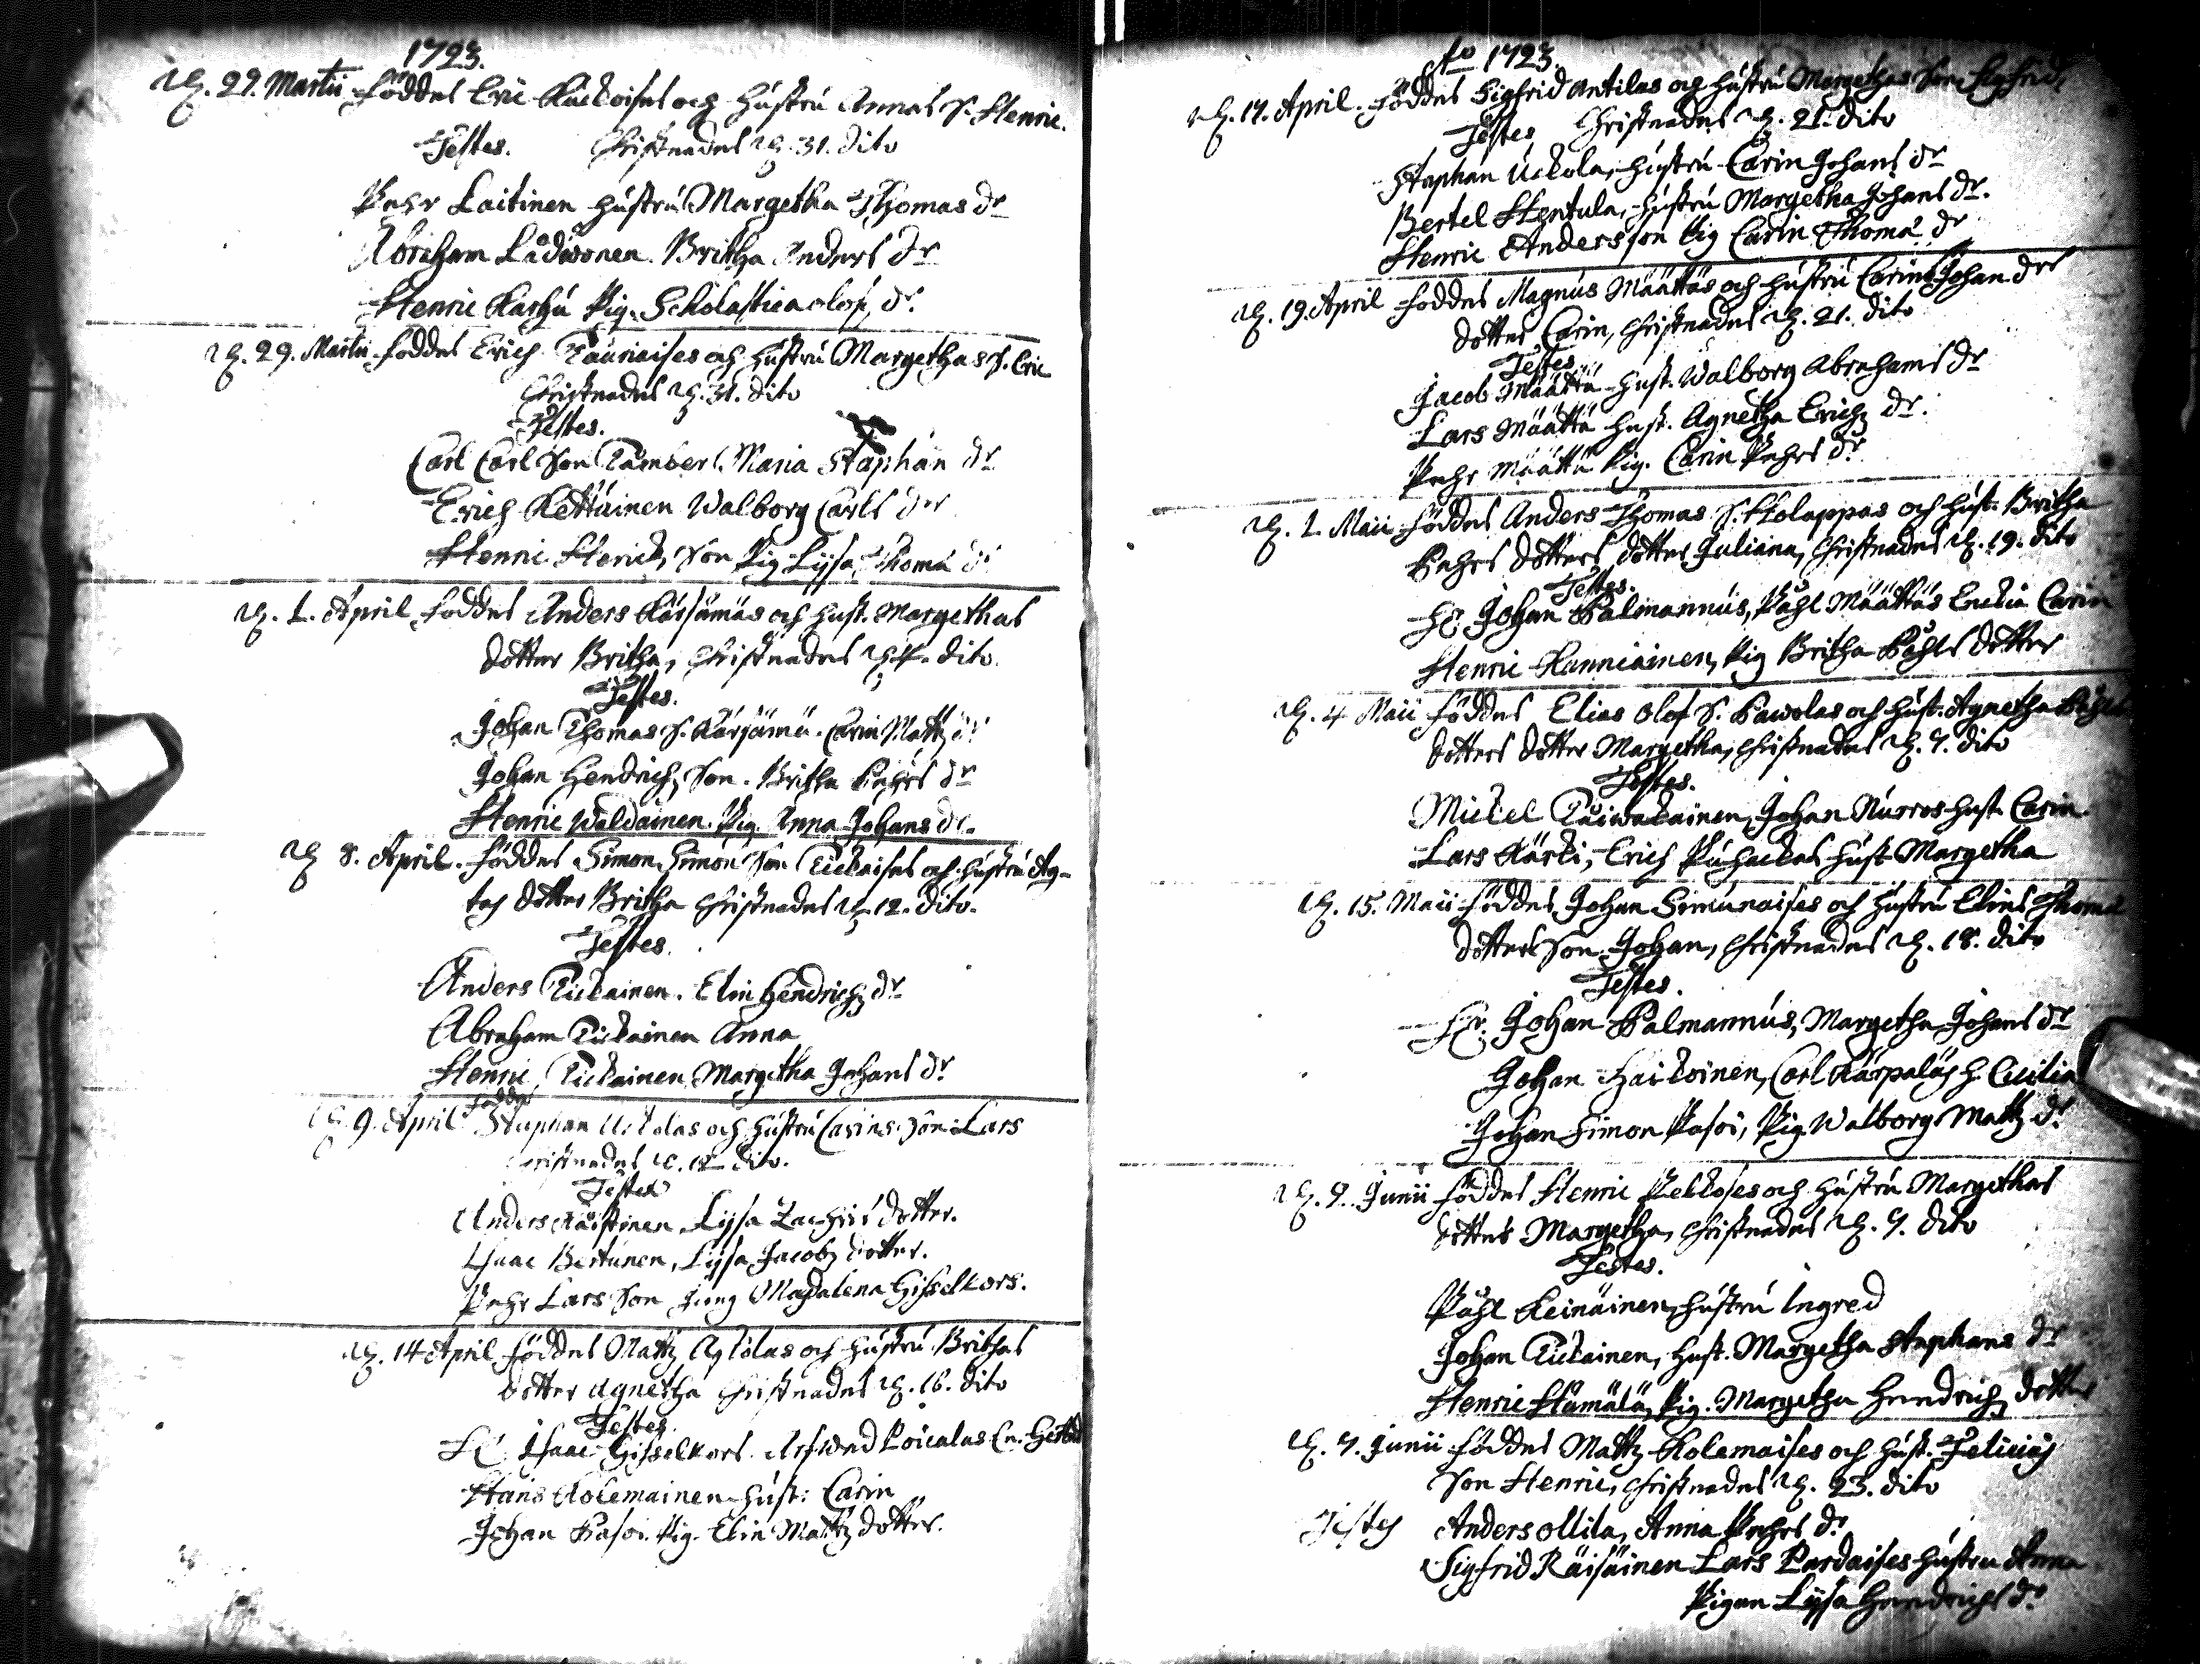 1723.
d. 29. Martii föddes Eric Kuckoises och hústrú Annas S. Henric.
Testes. Christnades d. 31. dito
Pehr Laitinen hústrú Margetha Thomas dr
Abraham Lådwonen. Britha Anders dr
Henric Karhú Pig. Scholastica olofz dr.
d. 29. Martii föddes Erich Tauriaises och hústrú Margethas S. Eric
Christnades d. 31. dito
Testes.
Carl Carl Son Tamber. Maria Staphan dr
Erich Kettúinen Walborg Carls dr
Henric Henrichz Son Pig Lijsa Thomæ dr
d. 1. April föddes Anders Kärsämäs och hust. Margethas
dotter Britha, Christnades d. 4. dito.
Testes.
Johan Thomas S. Kärsämä. Carin Mattz dr
Johan Hendrichz Son. Britha Pehrs dr
Henric Waldainen. Pig. Anna Johans dr.
d 8. April. föddes Simon Simon Son Tickaises och hústrú Ag-
tas dotter Britha Christnades d. 12. dito.
Testes.
Anders Tickainen. Elin Hendrichz dr
Abraham Tickainen Anna
Henric Tickainen Margetha Johans dr.
d. 9. April föddes Staphan Uckolas och hústrú Carins Son Lars
Christnades d. 12 dito.
Testes
Anders Räisinen Lijsa Zachris dotter.
Isaac Bertunen, Lijsa Jacobz dotter.
Pehr Lars Son Jung Magdalena Gisselkors.
d. 14 April föddes Mattz Ayldlas och hústrú Brithas
dotter Agnetha Christnades d. 16. dito
Testes
Hr Isaac Gisselkors. Arfwed Poicalas En. Gertud
Hans Kolemainen húst: Carin
Johan Pasoi. Pig. Elin Mattz dotter.
Ao 1723.
d. 17. April. föddes Sigfrid Antilas och hústrú Margethas Son Sigfrid.
Testes Christnades d. 21. dito
Staphan Uckola, hústrú Carin Johans dr
Bertel Hentula, hústrú Margetha Johans dr.
Henric Andersson Pig Carin Thomæ dr
d. 19. April föddes Magnús Määttäs och hústrú Carins Johan drs
dotter Carin, Christnades d. 21. dito
Testes
Jacob Määttä hust. Walborg Abrahams dr
Lars Määttä hust. Agnetha Erichz dr.
Pehr Määttä Pig. Carin Pehrs dr
d. 1. Maii föddes Anders Thomas S. Holappas och húst. Britha
Pehrs dotters dotter Juliana, Christnades d. 19. dito
Testes.
Hr Johan Palmannús, Påhl Määttäs Enckia Carin
Henric Kanniainen, Pig Britha Påhls dotter
d. 4 Maii föddes Elias Olof S. Pawolas och húst. Agnetha Påhls
dotters dotter Margetha, Christnades d. 7. dito
Testes.
Mickel Taiwalainen, Johan Nurros hust. Carin.
Lars Kärki, Erich Púhackas húst Margetha
d. 15. Maii föddes Johan Simúnaises och hústrú Elins Thomæ
dotters Son Johan, Christnades d. 18. dito
Testes.
Hr. Johan Palmannús, Margetha Johans dr
Johan Haikoinen, Carl Karpaläs h. Cicilia
Johan Simon Pasoi, Pig. Walborg Mattz dr
d. 2. Junii föddes Henric Pekkoses och hústrú Margethas
dotter Margetha, Christnades d. 7. dito
Testes.
Påhl Keinäinen, hústrú Ingred
Johan Tickainen, hust. Margetha Staphans dr
Henric Hämälä, Pig. Margetha Hendrichz dotter
d. 7. Junii föddes Mattz Kolemaises och húst. Feliciæ
Son Henric, Christnades d. 23. dito
Testes Anders Ollila, Anna Pehrs dr
Sigfrid Räisäinen Lars Pardaises hústru Anna
Pigan Lijsa Hendrichs dr